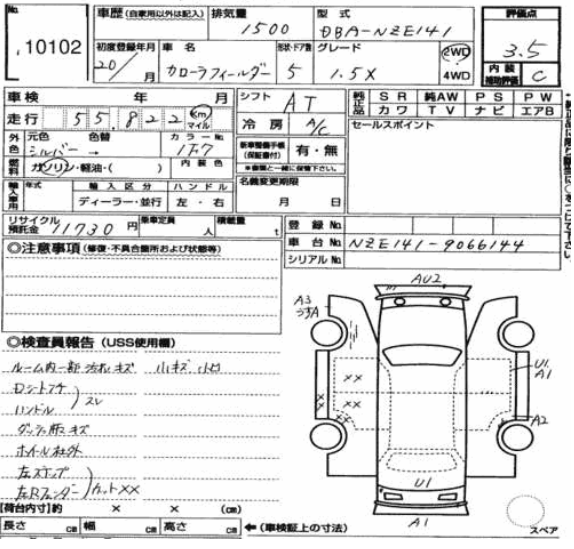 No.
10102
車歴(自家用以外は記入) 排気量 1500 型式 DBA-NZE141
評価点 3.5
内装補助評価 C
初度登録年月 20/ 月
車名 カローラフィールダー
形状・ドア数 5
グレード 1.5X
2WD
4WD
車検 年 月
シフト AT
純正品 SR 純AW PS PW
カワ TV ナビ エアB
走行 55,822 Km マイル
冷房 A/C
セールスポイント
外色 元色 シルバー → 色替 カラーNo. 1F7
新車整備手帳(保証書付) 有・無
燃料 ガソリン・軽油・( ) 内装色
輸入車用 年式 輸入区分 ディーラー・並行 ハンドル 左・右
名義変更期限 月 日
リサイクル預託金 11730 円 乗車定員 人 積載量 t
登録No.
車台No. NZE141-9066144
シリアルNo.
◎注意事項(修復・不具合箇所および状態等)
◎検査員報告(USS使用欄)
ルーム内一部汚れキズ 小キズ 小凹
Dシートコゲ
ハンドル スレ
ダッシュ版キズ
ホイール社外
左ステップ
左Rフェンダー カットXX
AU2
A3
うすA
XX
XX
U1
A1
A2
U1
A1
スペア
【荷台内寸】約 × × (cm)
長さ cm 幅 cm 高さ cm ←(車検証上の寸法)